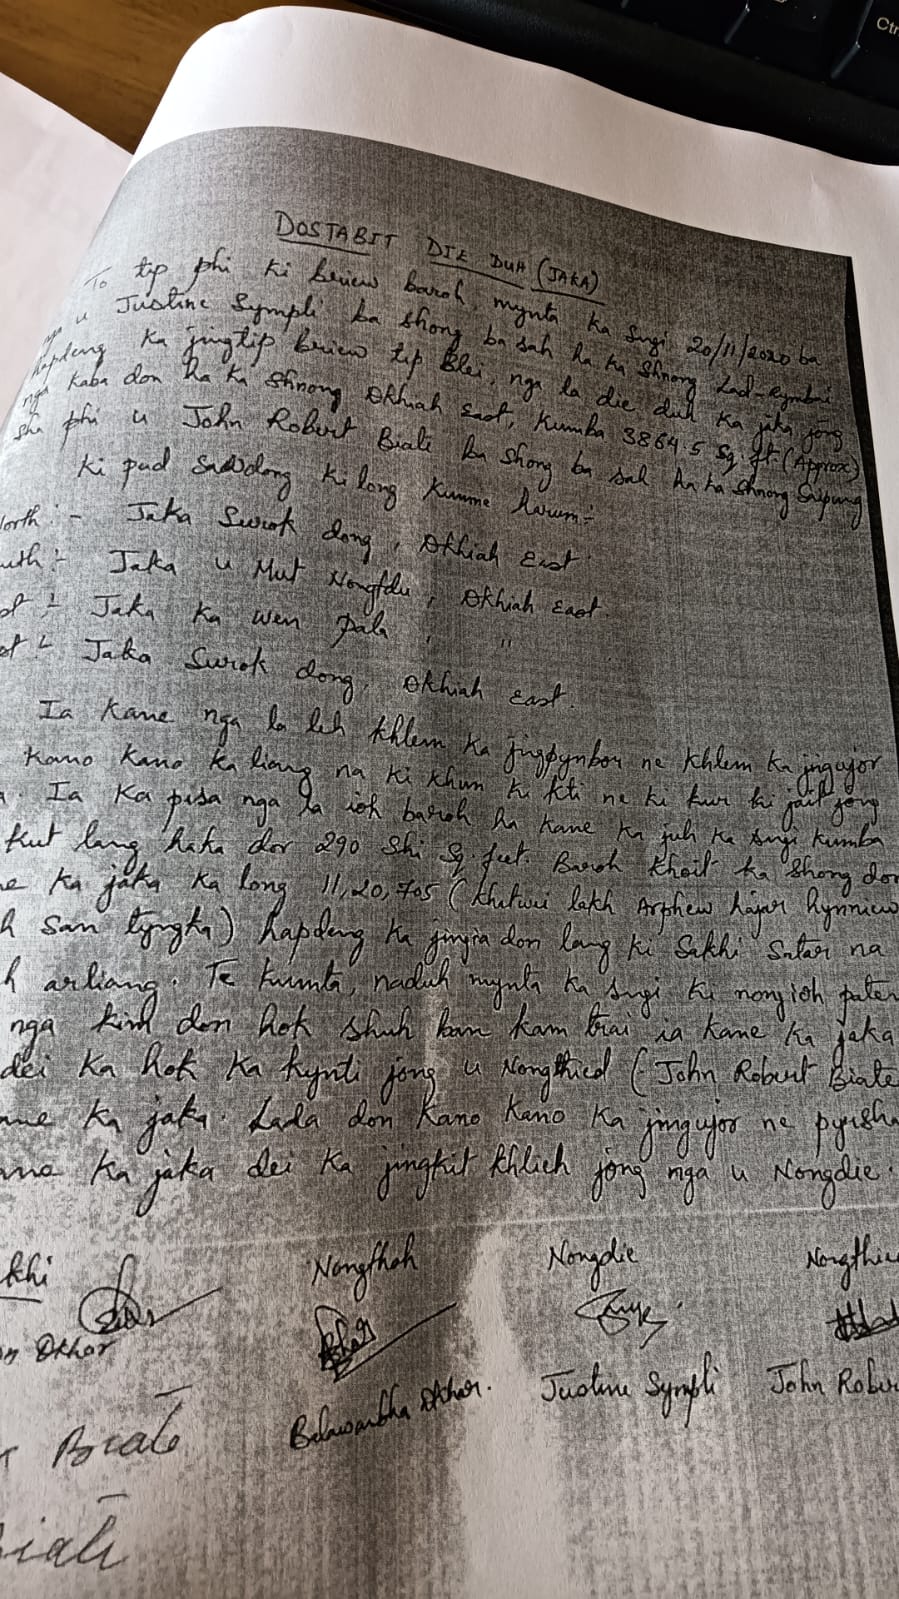 DOSTABIT DIE DUH (JAKA)
To tip phi ki briew baroh mynta ka sngi 20/11/2020 ba
nga u Justine Sympli ba shong ba sah ha ka shnong Lad-rymbai
hapdeng ka jingtip briew tip Blei, nga la die duh ka jaka jong
nga kaba don ha ka shnong Okhiah East, kumba 3864.5 Sq.ft (Approx)
sha phi u John Robert Biate ba shong ba sah ha ka shnong Saipung
ki pud sawdong ki long kumne harum:-
North :- Jaka Surok dong, Okhiah East
uth :- Jaka u Mut Nongfdu, Okhiah East.
st :- Jaka Ka Wen Pala, "
st :- Jaka Surok dong, Okhiah East.
Ia kane nga la leh khlem ka jingpynbor ne khlem ka jingujor
kano kano ka liang na ki khun ki kti ne ki kur ki jait jong
Ia ka pisa nga la ioh baroh ha kane ka juh ka sngi kumba
kut lang haka dor 290 shi sq. feet. Baroh khait ka shong dor
ne ka jaka ka long 11,20,705 (khatwei lakh Arphew hajar hynniew
h san tyngka) hapdeng ka jingia don lang ki sakhi satar na
h arliang. Te kumta, naduh mynta ka sngi ki nongioh pateng
nga kim don hok shuh ban kam trai ia kane ka jaka
dei ka hok ka kynti jong u Nongthied (John Robert Biate
ne ka jaka. Lada don kano kano ka jingujor ne pyrsha
ne ka jaka dei ka jingkit khlieh jong nga u Nongdie.
khi Nongthoh Nongdie Nongthie
Okhar Belawanbha Okhar. Justine Sympli John Rober
Biate
Biate